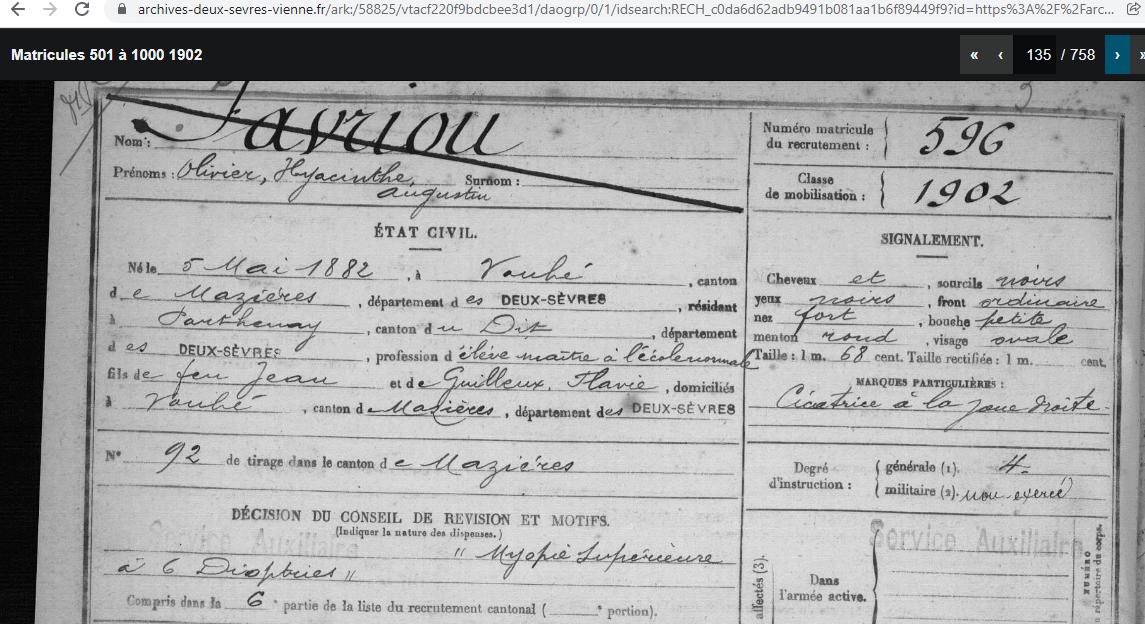 archives-deux-sevres-vienne.fr/ark:/58825/vtacf220f9bdcbee3d1/daogrp/0/1/idsearch:RECH_c0da6d62adb9491b081aa1b6f89449f9?id=https%3A%2F%2Farc...
Matricules 501 à 1000 1902
« ‹ 135 / 758 › »
Nom : Favriou
Prénoms : Olivier, Hyacinthe, Surnom :
Augustin
Numéro matricule du recrutement : 596
Classe de mobilisation : 1902
ÉTAT CIVIL.
Né le 5 Mai 1882, à Vouhé, canton
de Mazières, département des DEUX-SÈVRES, résidant
à Parthenay, canton du Dit, département
des DEUX-SÈVRES, profession d'élève maître à l'école normale
fils de feu Jean et de Guilleux, Flavie, domiciliés
à Vouhé, canton de Mazières, département des DEUX-SÈVRES
N° 92 de tirage dans le canton de Mazières
SIGNALEMENT.
Cheveux et, sourcils noirs
yeux noirs, front ordinaire
nez fort, bouche petite
menton rond, visage ovale
Taille : 1 m. 68 cent. Taille rectifiée : 1 m. cent.
MARQUES PARTICULIÈRES :
Cicatrice à la joue droite.
Degré d'instruction : générale (1). 4.
militaire (2). non exercé
DÉCISION DU CONSEIL DE REVISION ET MOTIFS.
(Indiquer la nature des dispenses.)
Service Auxiliaire
" Myopie Supérieure
à 6 Dioptries "
Compris dans la 6e partie de la liste du recrutement cantonal ( e portion).
affectés (3).
Service Auxiliaire
Dans
l'armée active.
NUMÉRO
répertoire du corps.